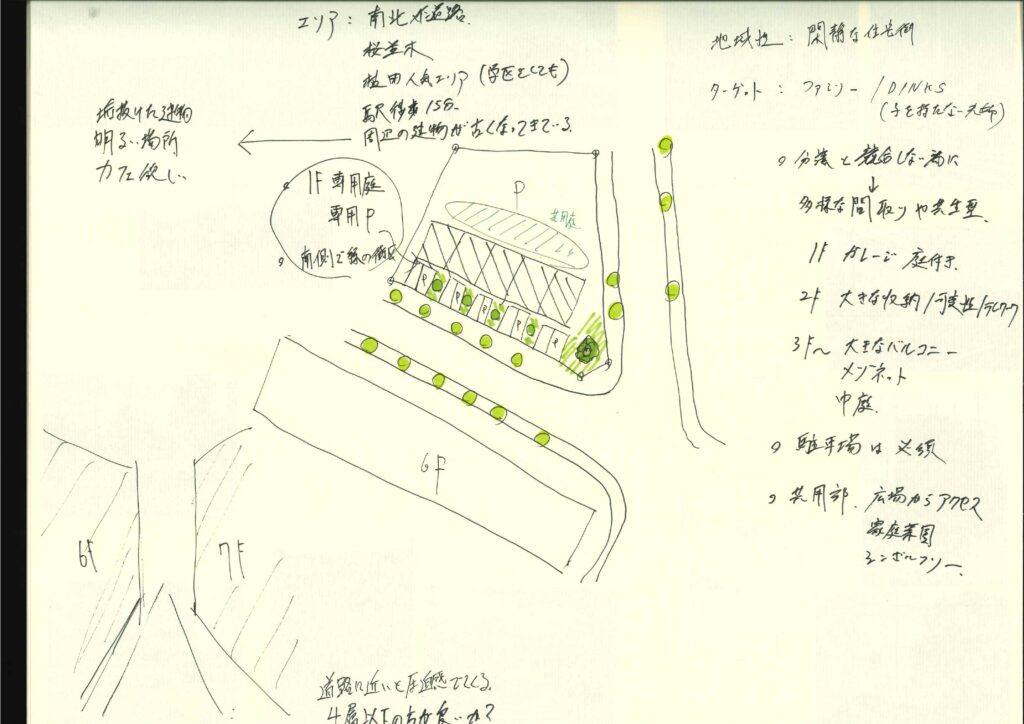 エリア: 南北が道路.
桜並木
人気エリア (学区としても)
駅徒歩15分.
周辺の建物が古くなってきている.
垢抜けた建物
明るい場所
カフェ欲しい
1F 専用庭
専用P
南側で緑の
P
共用庭
P
P
P
P
P
6F
6F
7F
道路に近いと圧迫感でてくる.
4層以下の方が良いか?
地域性: 閑静な住宅街
ターゲット: ファミリー / DINKS
(子を持たない夫婦)
分譲と競合しない為に
↓
多様な間取りや共生型.
1F ガレージ 庭付き
2F 大きな収納/可変性/テレワーク
3F〜 大きなバルコニー
メゾネット
中庭.
駐車場は必須
共用部. 広場からアクセス
家庭菜園
シンボルツリー.